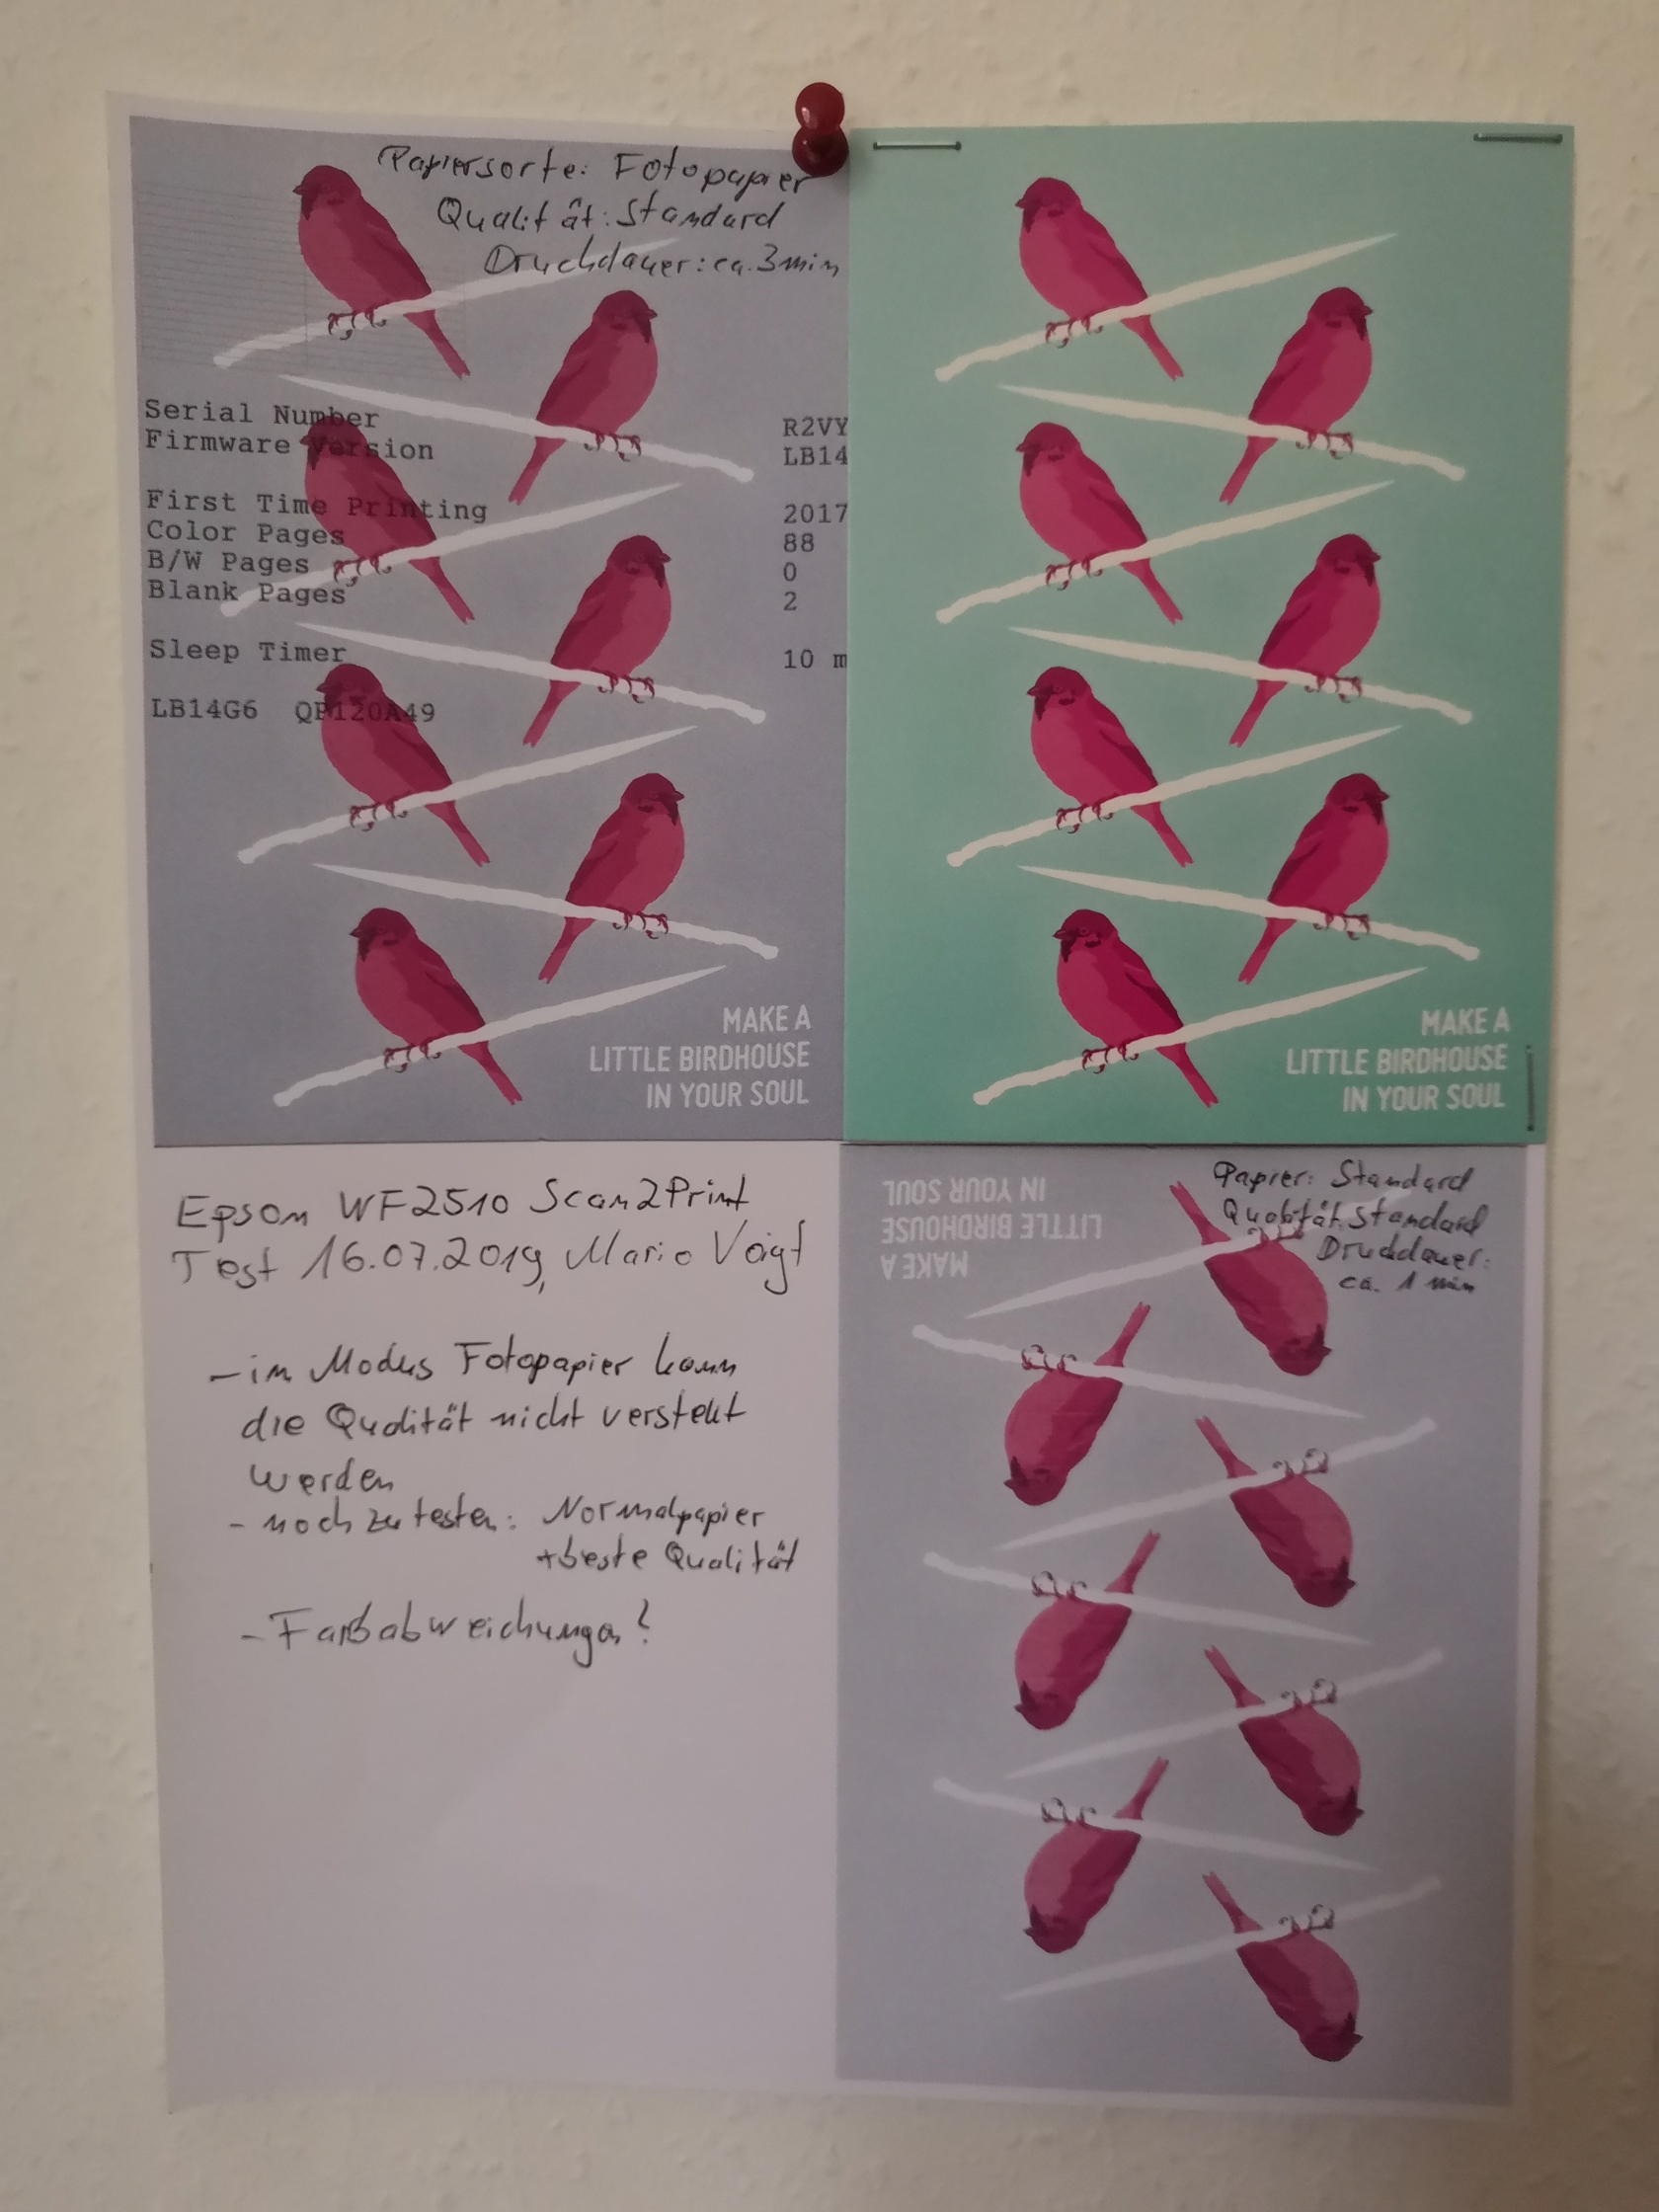 Papiersorte: Fotopapier
Qualität: Standard
Druckdauer: ca. 3min
Serial Number R2VY
Firmware Version LB14
First Time Printing 2017
Color Pages 88
B/W Pages 0
Blank Pages 2
Sleep Timer 10 m
LB14G6 QP120A49
MAKE A
LITTLE BIRDHOUSE
IN YOUR SOUL
MAKE A
LITTLE BIRDHOUSE
IN YOUR SOUL
Epson WF2510 Scan2Print
Test 16.07.2019, Mario Voigt
- im Modus Fotopapier kann
die Qualität nicht verstellt
werden
- noch zu testen: Normalpapier
+beste Qualität
- Farbabweichungen!
Papier: Standard
Qualität: Standard
Druckdauer:
ca. 1 min
MAKE A
LITTLE BIRDHOUSE
IN YOUR SOUL